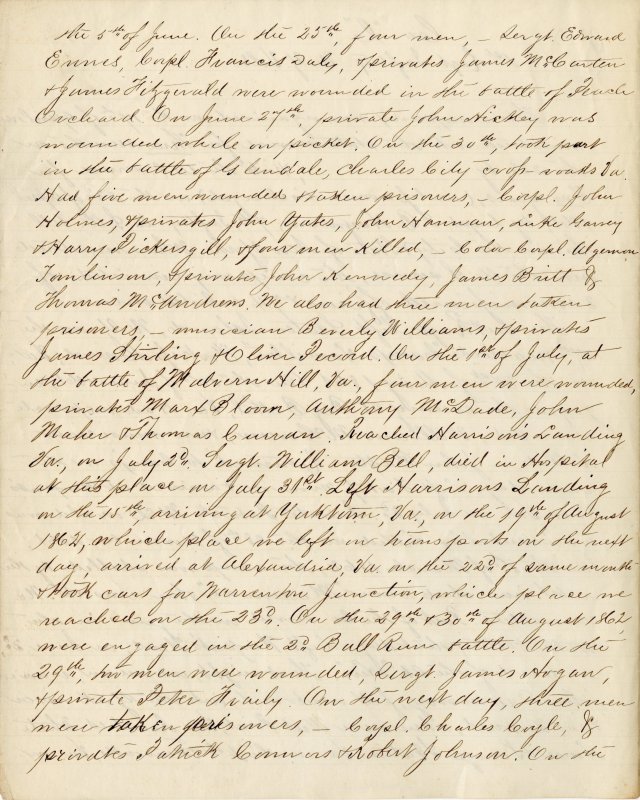 the 5th of June. On the 25th, four men, – Sergt. Edward
Ennes, Corpl. Francis Daly, & privates James McCarten
& James Fitzgerald were wounded in the battle of Peach
Orchard. On June 27th, private John Hickey was
wounded while on picket. On the 30th, took part
in the battle of Glendale, Charles City cross roads Va.
Had five men wounded & taken prisoners, – Corpl. John
Holmes, & privates John Yates, John Hannan, Luke Garvey
& Harry Pickersgill, & four men Killed, – Color Corpl. Algernon
Tomlinson, & privates John Kennedy, James Britt &
Thomas McAndrews. We also had three men taken
prisoners, – musician Beverly Williams, & privates
James Stirling & Oliver Pecord. On the 1st of July, at
the battle of Malvern Hill, Va., four men were wounded,
privates Marx Bloom, Anthony McDade, John
Maher & Thomas Curran. Reached Harrison's Landing
Va., on July 2d. Sergt. William Bell, died in Hospital
at this place on July 31st. Left Harrisons Landing
on the 15th, arriving at Yorktown, Va., on the 19th of August
1862, which place we left on transports on the next
day, arrived at Alexandria, Va. on the 22d of same month
& took cars for Warrenton Junction, which place we
reached on the 23d. On the 29th & 30th of August 1862
were engaged in the 2d Bull Run battle. On the
29th, two men were wounded, Sergt. James Hogan,
& private Peter Fraily. On the next day, three men
were taken prisoners, – Corpl. Charles Coyle, &
privates Patrick Connors & Robert Johnson. On the